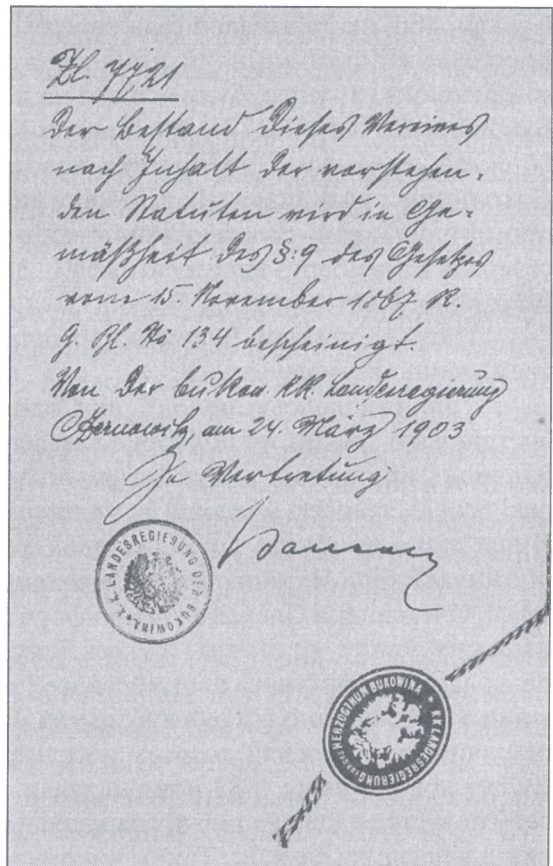 Zl. 7721
Der Bestand dieses Vereines
nach Inhalt der vorstehen-
den Statuten wird in Ge-
mäßheit des §: 9 des Gesetzes
vom 15. November 1867 R.
G. Bl. No 134 bescheinigt.
Von der bukow. k.k. Landesregierung
Czernowitz, am 24. März 1903
In Vertretung
K. K. LANDESREGIERUNG DER BUKOWINA
K.K. LANDESREGIERUNG HERZOGTHUM BUKOWINA